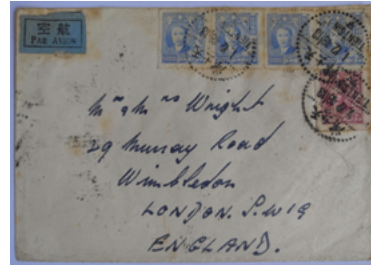 空航
PAR AVION
Mr & Mrs Wright
29 Murray Road
Wimbledon
LONDON. S.W19
ENGLAND.